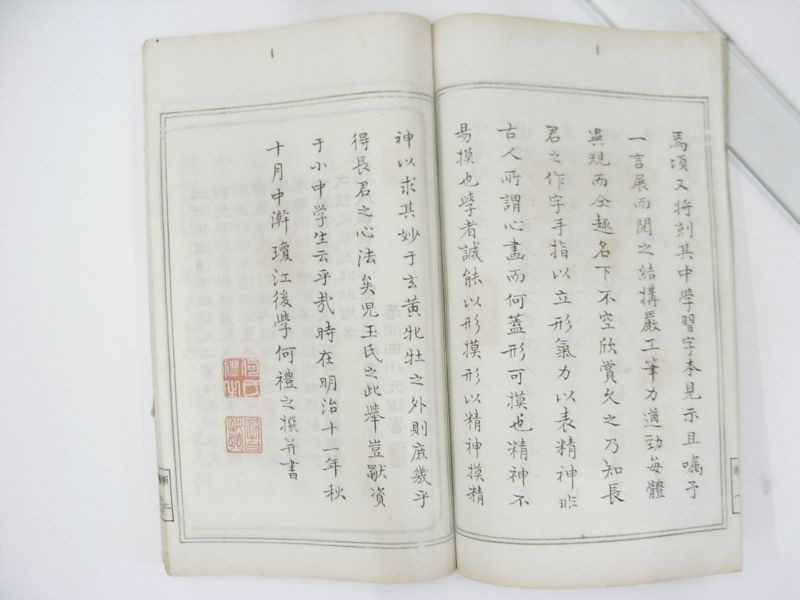 焉頃又将刻其中學習字本見示且嘱予
一言展而閱之结構嚴工筆力遒勁每體
異規而全趣名下不空欣賞久之乃知長
君之作字手指以立形氣力以表精神非
古人所謂心畫而何蓋形可摸也精神不
易摸也學者誠能以形摸形以精神摸精
神以求其妙于玄黃牝牡之外則庶幾乎
得長君之心法矣児玉氏之此舉豈獣資
于小中学生云乎哉時在明治十一年秋
十月中澣瓊江後學何禮之撰并書